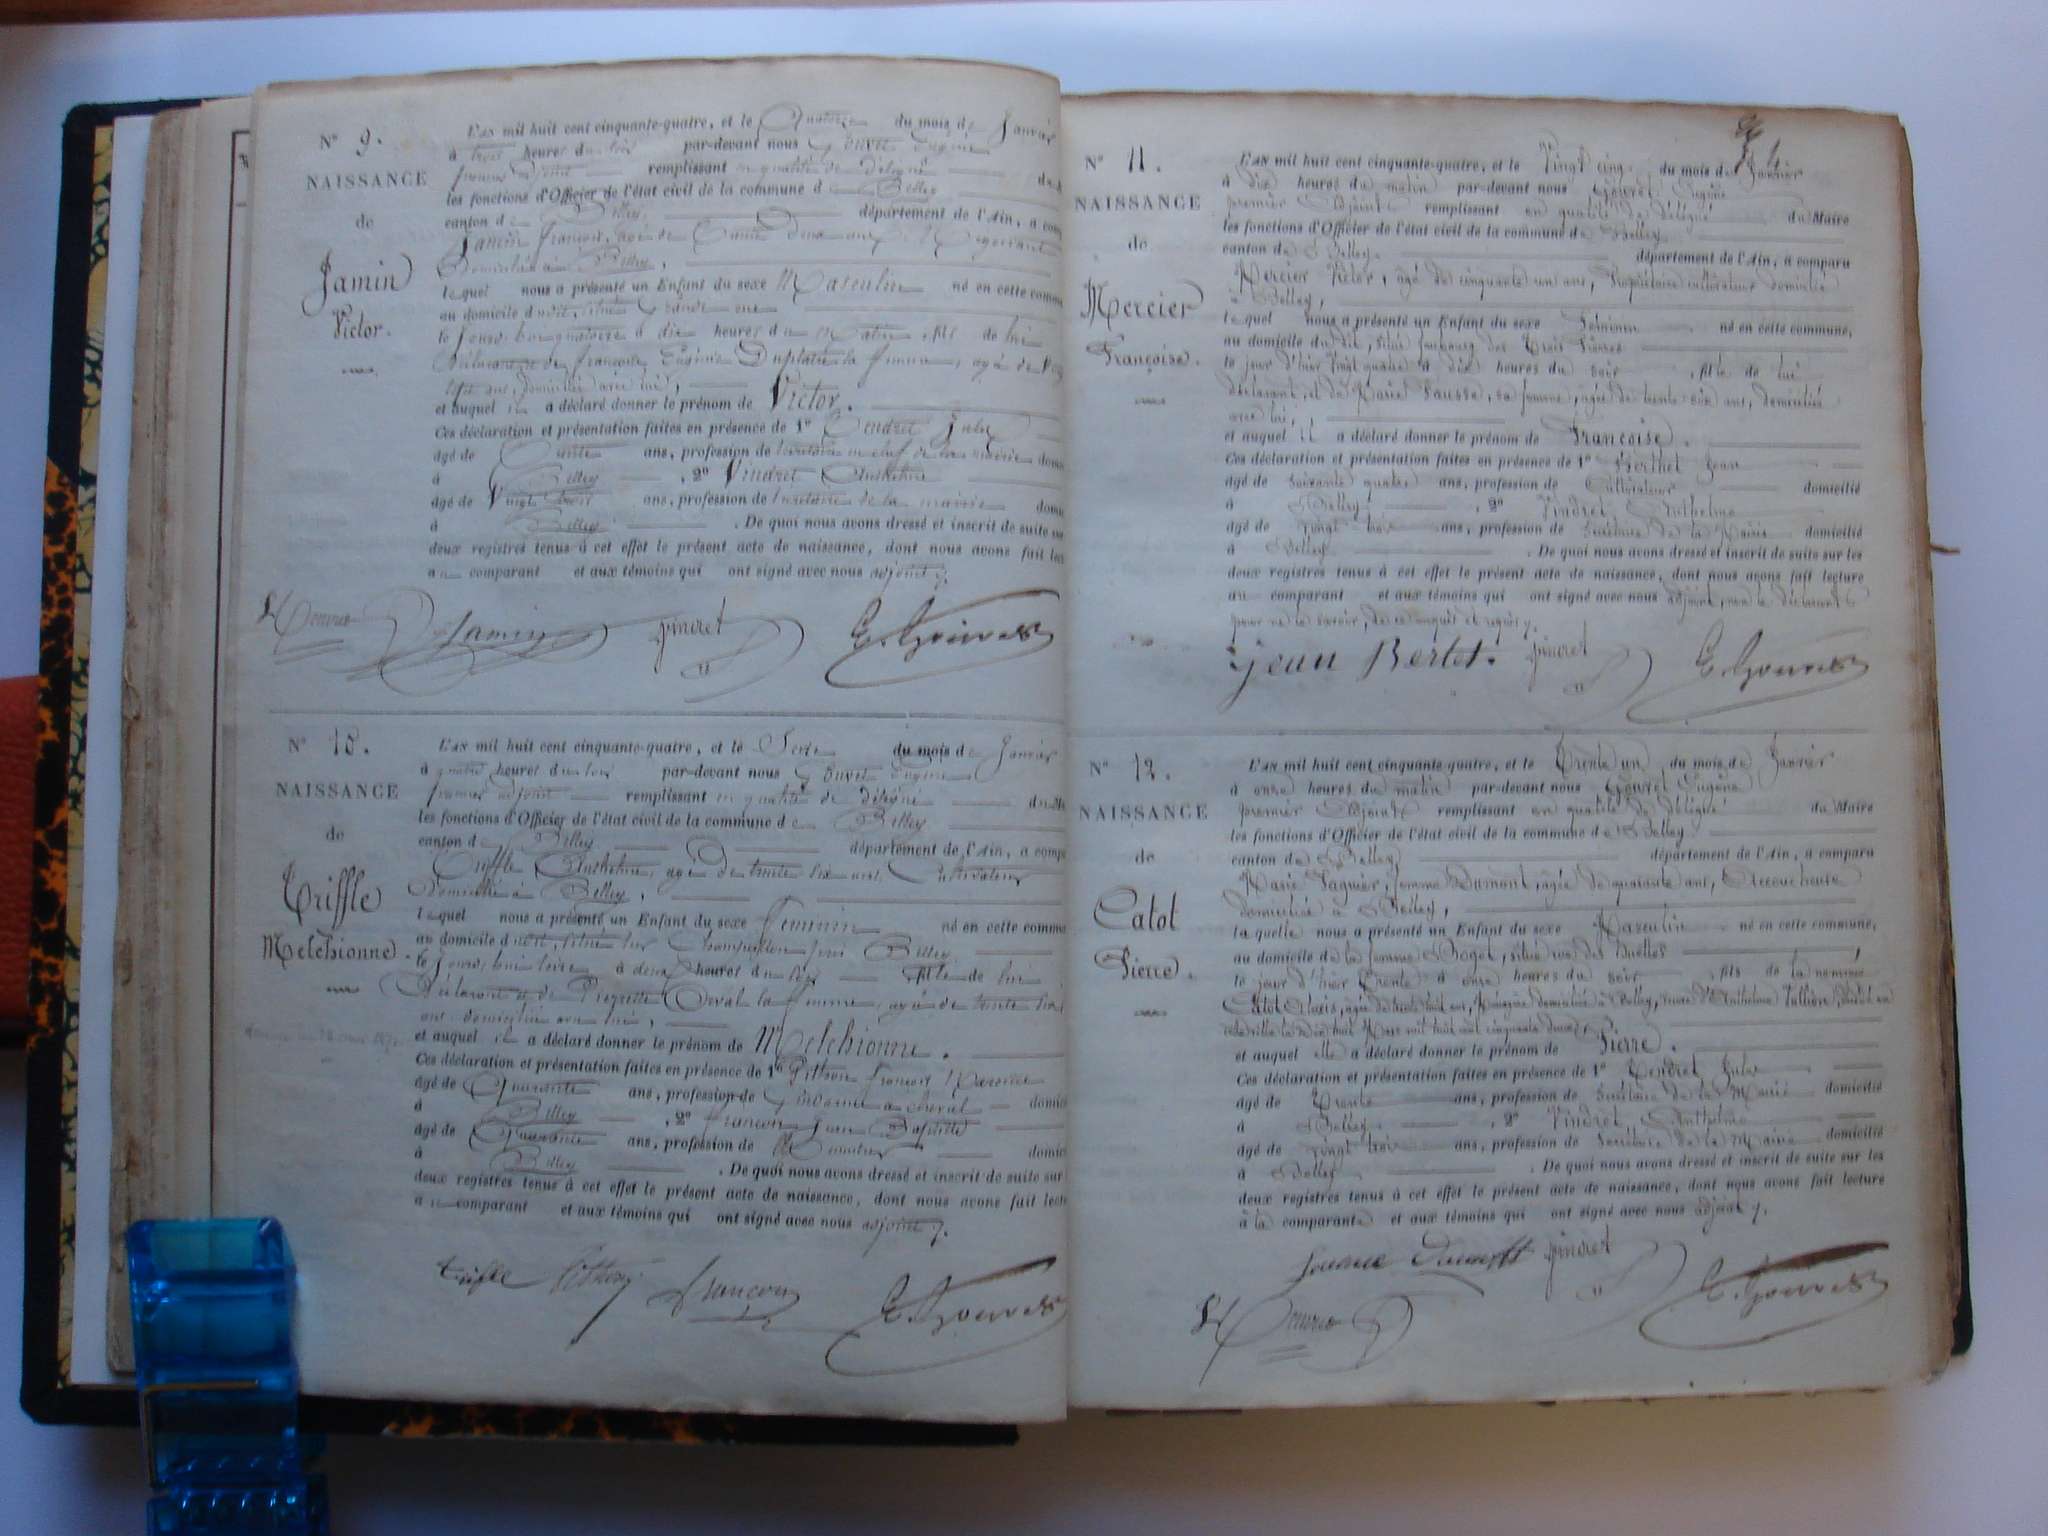 N° 9.
NAISSANCE
de
Jamin
Victor.
L'AN mil huit cent cinquante-quatre, et le Quatorze du mois de Janvier
à trois heures du soir par-devant nous Gouvet Eugène
premier adjoint remplissant en qualité de délégué
les fonctions d'Officier de l'état civil de la commune de Belley
canton de Belley département de l'Ain, a comp
Jamin françois, agé de Trente Deux ans, Negociant
Domicilié à Belley,
lequel nous a présenté un Enfant du sexe Masculin né en cette commu
au domicile dudit, situé Grande rue
le Jourd'hui quatorze à dix heures du Matin, fils de lui
Déclarant et de françoise Eugénie sa femme, agée de Vingt
sept ans, domiciliée avec lui,
et auquel il a déclaré donner le prénom de Victor.
Ces déclaration et présentation faites en présence de 1° Tendret Jules
âgé de Trente ans, profession de Secrétaire en chef de la mairie domi
à Belley, 2° Vindret Anthelme
âgé de Vingt trois ans, profession de Secrétaire de la mairie domi
à Belley. De quoi nous avons dressé et inscrit de suite sur
deux registres tenus à cet effet le présent acte de naissance, dont nous avons fait lect
au comparant et aux témoins qui ont signé avec nous adjoint.
Jamin Vindret E. Gouvet
N° 10.
NAISSANCE
de
Triffle
Melchionne.
L'AN mil huit cent cinquante-quatre, et le Seize du mois de Janvier
à quatre heures du soir par-devant nous Gouvet Eugène
premier adjoint remplissant en qualité de délégué du M
les fonctions d'Officier de l'état civil de la commune de Belley
canton de Belley département de l'Ain, a comp
Triffle Anthelme, agé de trente six ans, Cultivateur
Domicilié à Belley,
lequel nous a présenté un Enfant du sexe feminin né en cette commu
au domicile dudit, situé sur Champeillon près Belley
le Jourd'hui seize à deux heures du soir, fille de lui
Déclarant et de Pierrette sa femme, agée de trente trois
ans, domiciliée avec lui,
et auquel il a déclaré donner le prénom de Melchionne.
Ces déclaration et présentation faites en présence de 1° françois
âgé de Quarante ans, profession de Gendarme à cheval domi
à Belley, 2° françon Jean Baptiste
âgé de Quarante ans, profession de domi
à Belley. De quoi nous avons dressé et inscrit de suite sur
deux registres tenus à cet effet le présent acte de naissance, dont nous avons fait lect
au comparant et aux témoins qui ont signé avec nous adjoint.
trifle françon E. Gouvet
N° 11.
NAISSANCE
de
Mercier
Françoise.
L'AN mil huit cent cinquante-quatre, et le Vingt cinq du mois de Janvier
à dix heures du matin par-devant nous Gouvet Eugène
premier adjoint remplissant en qualité de délégué du Maire
les fonctions d'Officier de l'état civil de la commune de Belley
canton de Belley. département de l'Ain, a comparu
Mercier Victor, âgé de cinquante un ans, Propriétaire cultivateur domicilié
à Belley,
lequel nous a présenté un Enfant du sexe Féminin né en cette commune,
au domicile du dit, situé faubourg des Trois Pierres
le jour d'hier Vingt quatre à dix heures du soir, fille de lui
déclarant, et de Marie Pausse, sa femme, agée de trente six ans, domiciliée
avec lui,
et auquel il a déclaré donner le prénom de Françoise.
Ces déclaration et présentation faites en présence de 1° Berthet Jean
âgé de soixante quatre ans, profession de Cultivateur domicilié
à Belley, 2° Vindret, Anthelme
âgé de vingt trois ans, profession de Secrétaire de la Mairie domicilié
à Belley. De quoi nous avons dressé et inscrit de suite sur les
deux registres tenus à cet effet le présent acte de naissance, dont nous avons fait lecture
au comparant et aux témoins qui ont signé avec nous adjoint, non le déclarant
pour ne le savoir, de ce enquis et requis.
jean Bertet. Vindret E. Gouvet
N° 12.
NAISSANCE
de
Catot
Pierre.
L'AN mil huit cent cinquante-quatre, et le Trente un du mois de Janvier
à onze heures du matin par-devant nous Gouvet Eugène
premier adjoint remplissant en qualité de délégué du Maire
les fonctions d'Officier de l'état civil de la commune de Belley
canton de Belley département de l'Ain, a comparu
Marie Paquier, femme Dumont, âgée de quarante ans, Accoucheuse
domiciliée à Belley,
laquelle nous a présenté un Enfant du sexe Masculin né en cette commune,
au domicile de la femme Bogot, situé rue des Ruelles
le jour d'hier Trente à onze heures du soir, fils de la nommée
Catot Alaxis, agée de trente huit ans, domiciliée à Belley, veuve d'Anthelme
et auquel elle a déclaré donner le prénom de Pierre.
Ces déclaration et présentation faites en présence de 1° Tendret Jules
âgé de Trente ans, profession de Secrétaire de la Mairie domicilié
à Belley, 2° Vindret, Anthelme
âgé de vingt trois ans, profession de Secrétaire de la Mairie domicilié
à Belley. De quoi nous avons dressé et inscrit de suite sur les
deux registres tenus à cet effet le présent acte de naissance, dont nous avons fait lecture
à la comparante et aux témoins qui ont signé avec nous adjoint.
Vindret
E. Gouvet